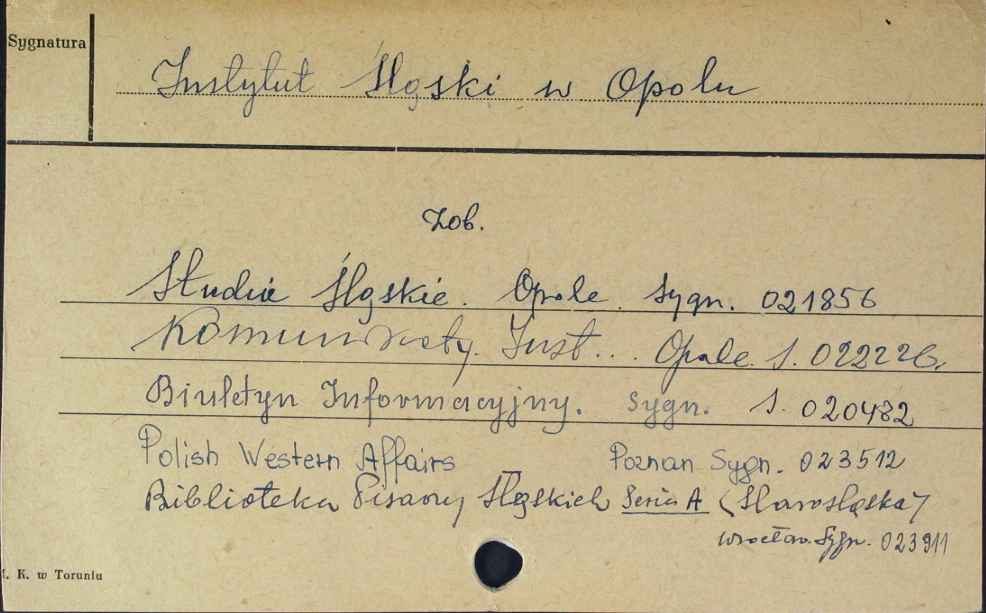 Sygnatura
Instytut Śląski w Opolu
Zob.
Studia Śląskie. Opole. Sygn. 021856
Komunikaty. Inst... Opole. S. 022226.
Biuletyn Informacyjny. Sygn. S. 020482
Polish Western Affairs Poznan Sygn. 023512
Biblioteka Pisarzy Śląskich Seria A (Starośląska)
Wrocław. Sygn. 023911
. K. w Toruniu